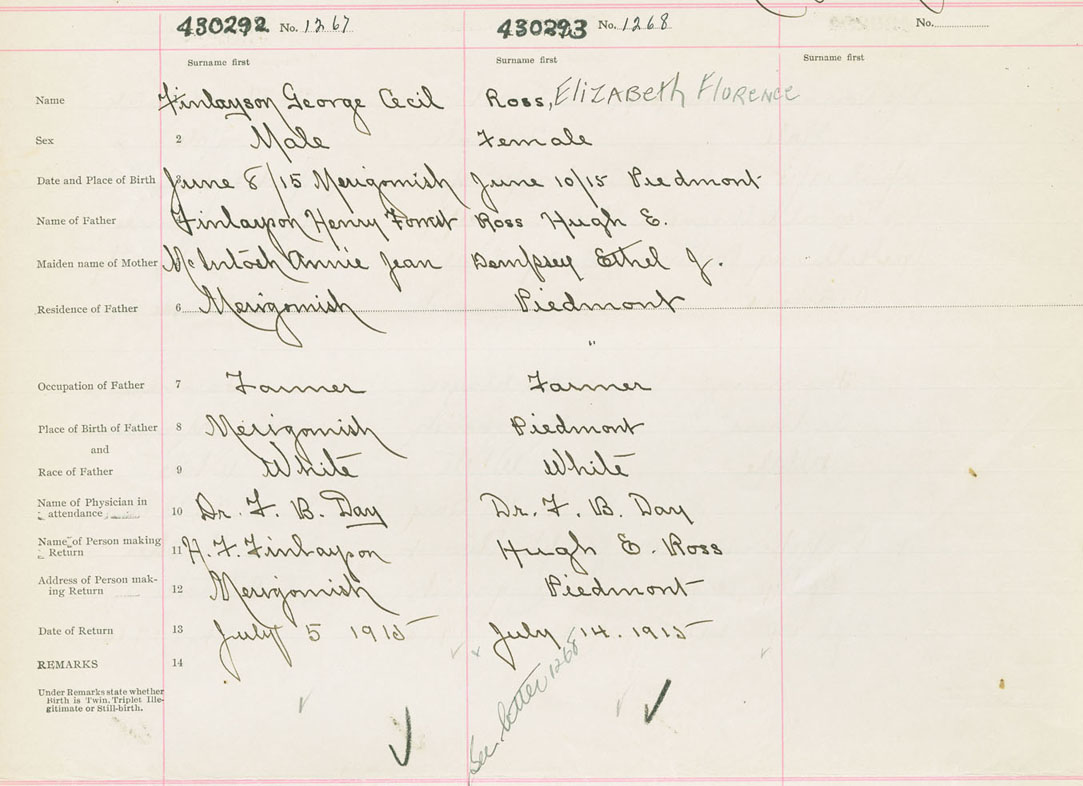 430292 No. 1267 430293 No. 1268 No.
Surname first Surname first Surname first
Name Finlayson George Cecil Ross, Elizabeth Florence
Sex 2 Male Female
Date and Place of Birth 3 June 8/15 Merigomish June 10/15 Piedmont
Name of Father Finlayson Henry Forrest Ross Hugh E.
Maiden name of Mother McIntosh Annie Jean Dempsey Ethel J.
Residence of Father 6 Merigomish Piedmont
"
Occupation of Father 7 Farmer Farmer
Place of Birth of Father 8 Merigomish Piedmont
and
Race of Father 9 White White
Name of Physician in
attendance 10 Dr. F. B. Day Dr. F. B. Day
Name of Person making
Return 11 H. F. Finlayson Hugh E. Ross
Address of Person mak-
ing Return 12 Merigomish Piedmont
Date of Return 13 July 5 1915 July 14. 1915
REMARKS 14
See letter 1268
Under Remarks state whether
Birth is Twin, Triplet Ille-
gitimate or Still-birth.